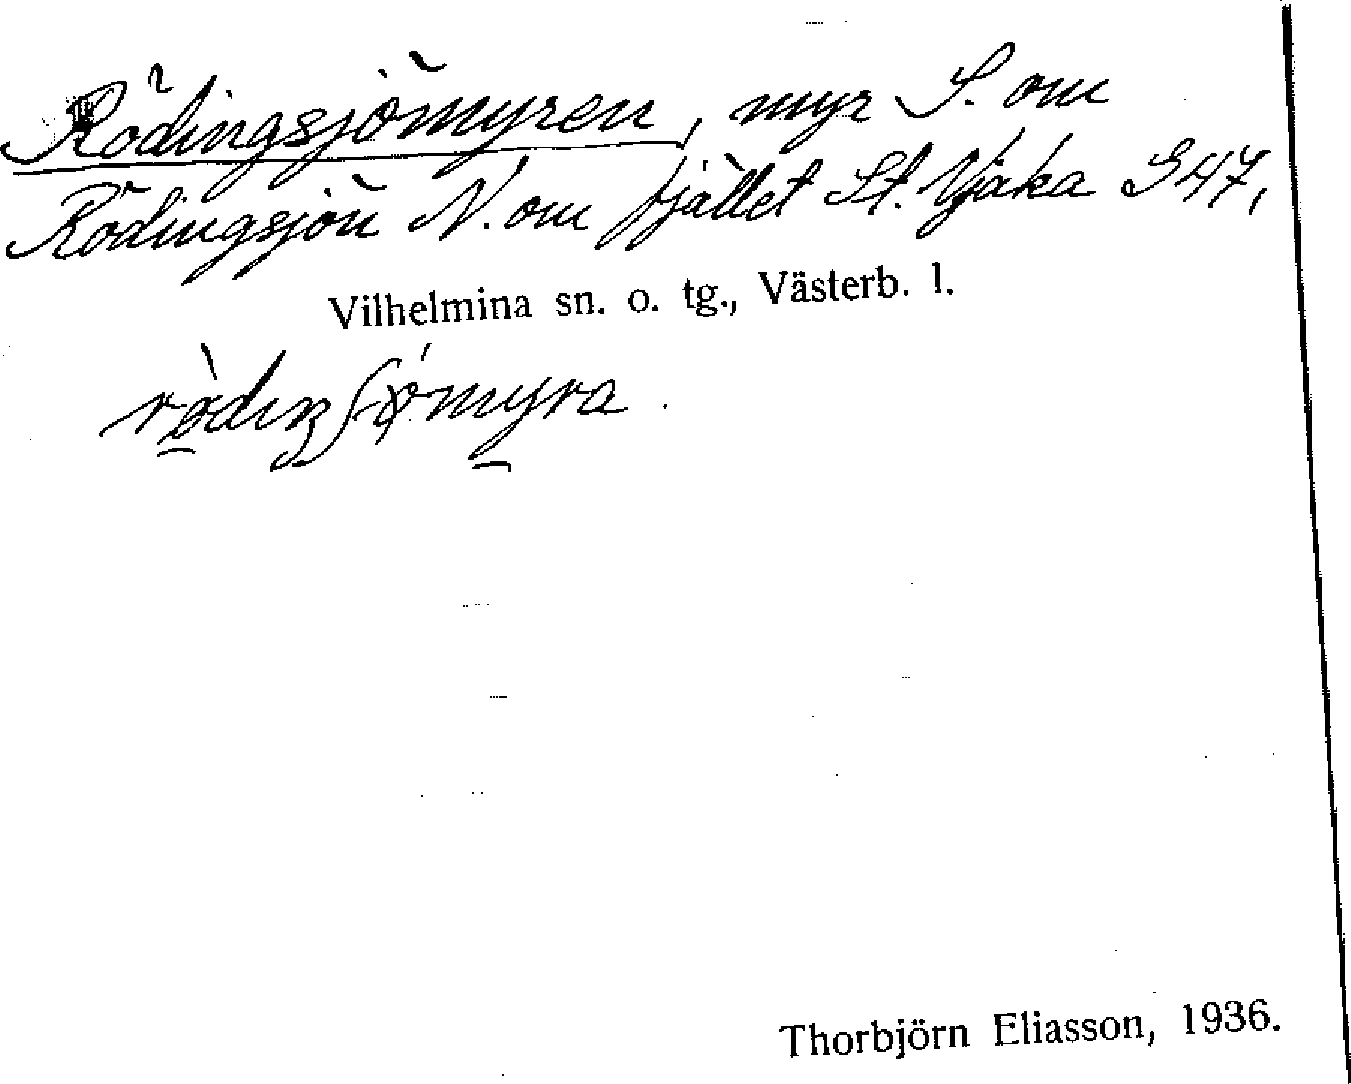 Rödingsjömyren, myr S. om
Rödingsjön N. om fjället St. Njaka S 47,
Vilhelmina sn. o. tg., Västerb. l.
Thorbjörn Eliasson, 1936.